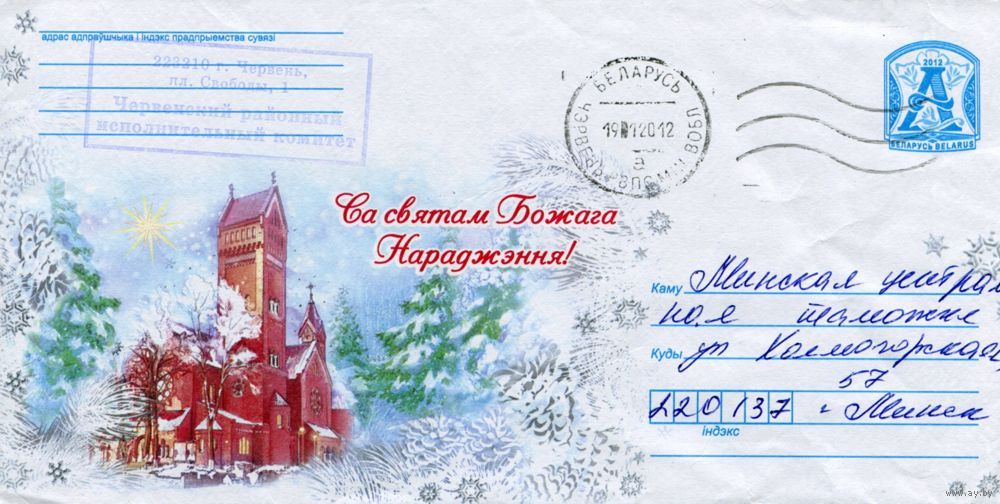 адрас адпраўшчыка і індэкс прадпрыемства сувязі
223210 г. Червень,
пл. Свободы, 1
Червенский районный
исполнительный комитет
БЕЛАРУСЬ
19 12012
а
2012
А
БЕЛАРУСЬ BELARUS
Са святам Божага
Нараджэння!
Каму Минская центра
ная таможня
Куды ул Холмогорская,
57
220137 г. Минск
індэкс
www.ay.by